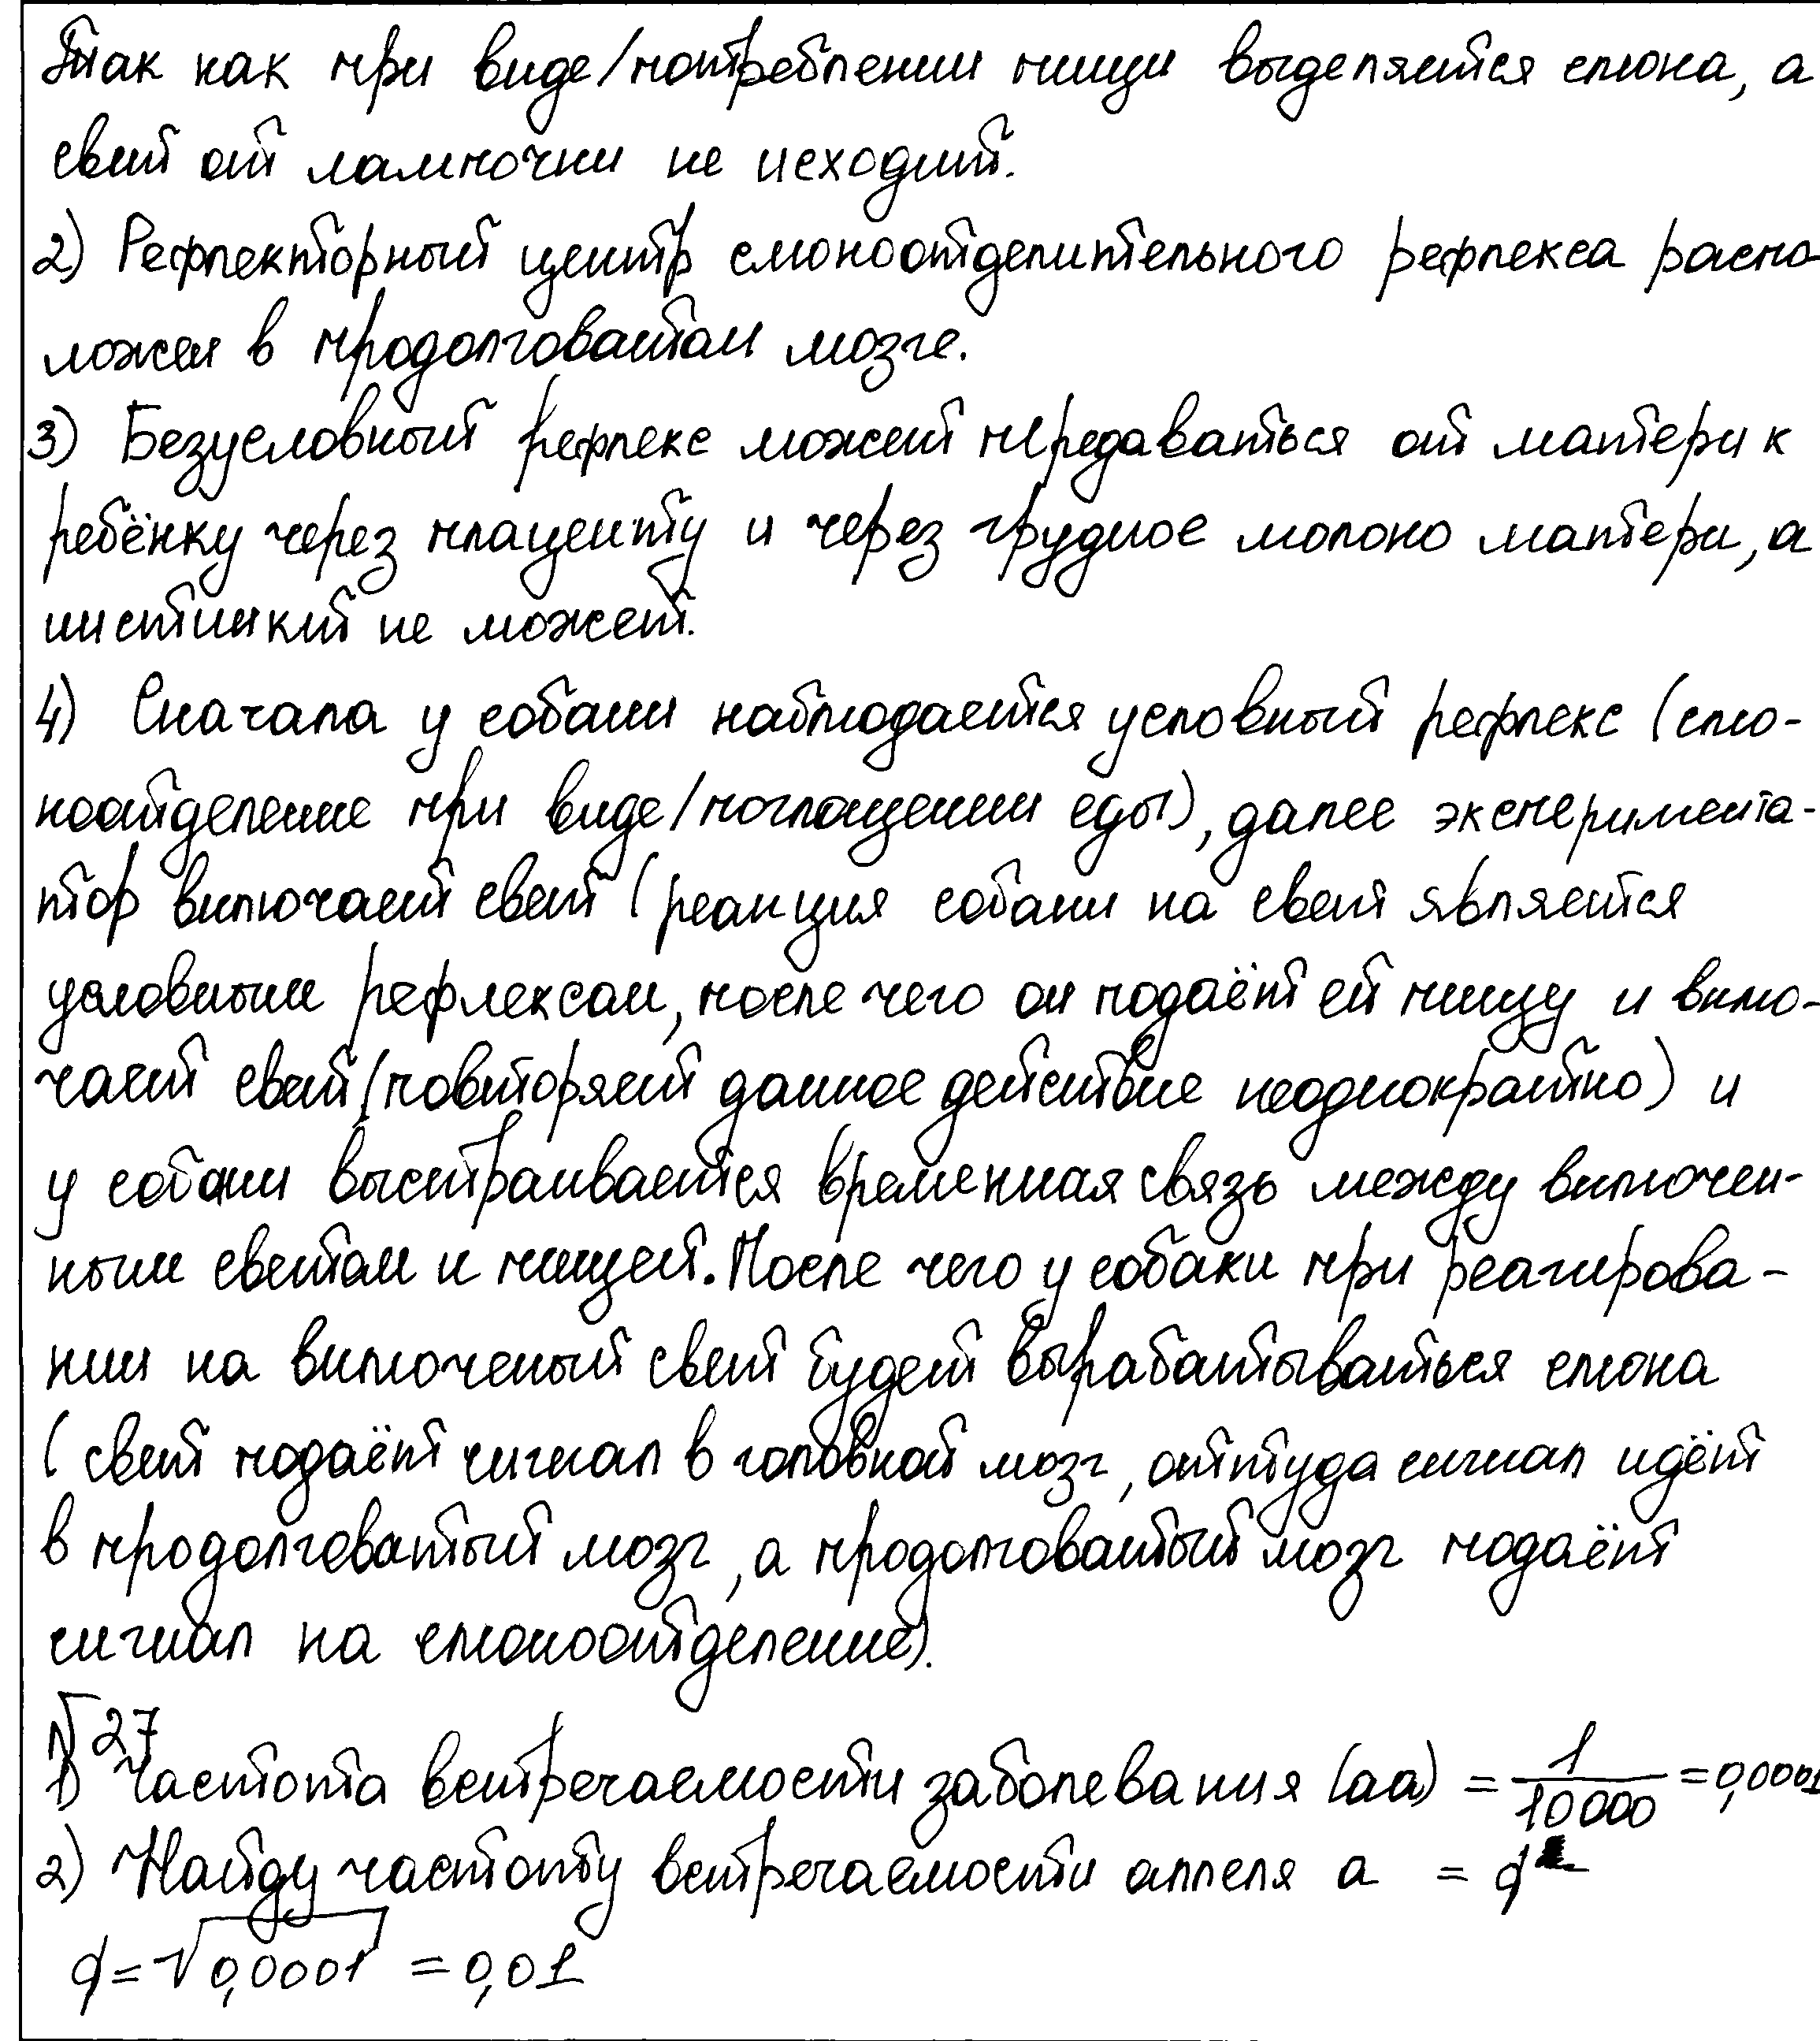 Так как при виде/потреблении пищи выделяется слюна, а
свет от лампочки не исходит.
2) Рефлекторный центр слюноотделительного рефлекса распо-
ложен в продолговатом мозге.
3) Безусловный рефлекс может передаваться от матери к
ребёнку через плаценту и через грудное молоко матери, а
инстинкт не может.
4) Сначала у собаки наблюдается условный рефлекс (слю-
ноотделение при виде/поглощении еды), далее эксперимента-
тор включает свет (реакция собаки на свет является
условным рефлексом, после чего он подаёт ей пищу и вклю-
чает свет (повторяет данное действие неоднократно) и
у собаки выстраивается временная связь между включен-
ным светом и пищей. После чего у собаки при реагирова-
нии на включеный свет будет вырабатываться слюна
(свет подаёт сигнал в головной мозг, оттуда сигнал идёт
в продолговатый мозг, а продолговатый мозг подаёт
сигнал на слюноотделение).
№27
1) Частота встречаемости заболевания (аа) = 1/10000 = 0,0001
2) Найду частоту встречаемости аллеля а = q
q = √0,0001 = 0,01